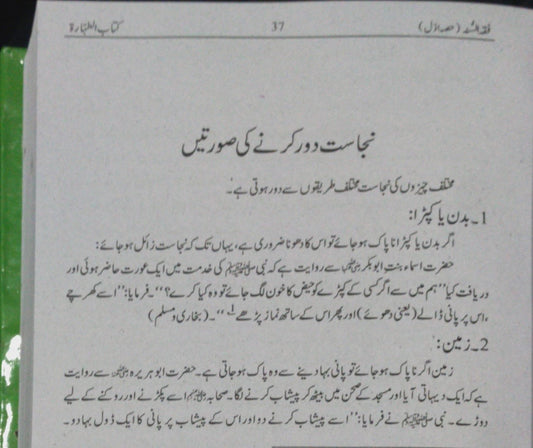 فقہ السنہ (حصہ اوّل) 37 کتاب الطہارۃ
نجاست دور کرنے کی صورتیں
مختلف چیزوں کی نجاست مختلف طریقوں سے دور ہوتی ہے۔
1۔بدن یا کپڑا:
اگر بدن یا کپڑا ناپاک ہو جائے تو اس کا دھونا ضروری ہے، یہاں تک کہ نجاست زائل ہو جائے:
حضرت اسماء بنتِ ابوبکر رضی اللہ عنہا سے روایت ہے کہ نبی ﷺ کی خدمت میں ایک عورت حاضر ہوئی اور
دریافت کیا ’’ہم میں سے اگر کسی کے کپڑے کو حیض کا خون لگ جائے تو وہ کیا کرے؟‘‘۔ فرمایا: ’’اسے کھرچے
،اس پر پانی ڈالے (یعنی دھوئے) اور پھر اس کے ساتھ نماز پڑھے‘‘۔ (بخاری و مسلم)
2۔زمین:
زمین اگر ناپاک ہو جائے تو پانی بہا دینے سے وہ پاک ہو جاتی ہے۔ حضرت ابوہریرہ رضی اللہ عنہ سے روایت
ہے کہ ایک دیہاتی آیا اور مسجد کے صحن میں بیٹھ کر پیشاب کرنے لگا۔ صحابہ اسے پکڑنے اور روکنے کے لیے
دوڑے۔ نبی ﷺ نے فرمایا: ’’اسے پیشاب کرنے دو اور اس کے پیشاب پر پانی کا ایک ڈول بہا دو۔